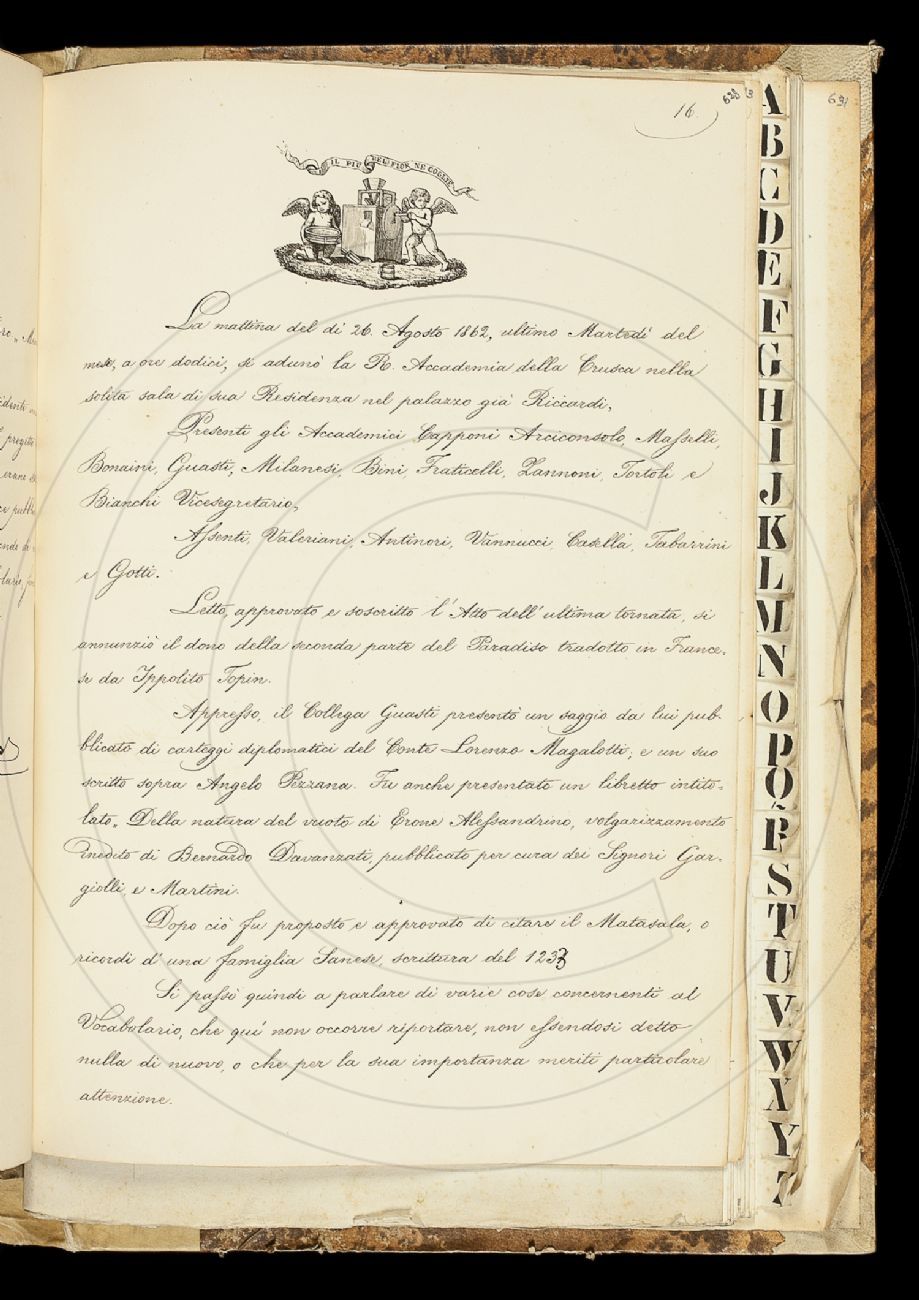 16.
628
3
631
IL PIU BEL FIOR NE COGLIE
La mattina del dì 26. Agosto 1862, ultimo Martedì del
mese, a ore dodici, si adunò la R. Accademia della Crusca nella
solita sala di sua Residenza nel palazzo già Riccardi,
Presenti gli Accademici Capponi Arciconsolo, Masselli,
Bonaini, Guasti, Milanesi, Bini, Fraticelli, Zannoni, Tortoli e
Bianchi Vicesegretario,
Assenti, Valeriani, Antinori, Vannucci, Casella, Tabarrini
e Gotti.
Letto, approvato e soscritto l'Atto dell'ultima tornata, si
annunziò il dono della seconda parte del Paradiso tradotto in France-
se da Ippolito Topin.
Appresso, il Collega Guasti presentò un saggio da lui pub-
blicato di carteggi diplomatici del Conte Lorenzo Magalotti; e un suo
scritto sopra Angelo Pezzana. Fu anche presentato un libretto intito-
lato „ Della natura del vuoto di Erone Alessandrino, volgarizzamento
inedito di Bernardo Davanzati, pubblicato per cura dei Signori Gar-
giolli e Martini.
Dopo ciò fu proposto e approvato di citare il Matasala, o
ricordi d'una famiglia Sanese, scrittura del 1233
Si passò quindi a parlare di varie cose concernenti al
Vocabolario, che qui non occorre riportare, non essendosi detto
nulla di nuovo, o che per la sua importanza meriti particolare
attenzione.
A
B
C
D
E
F
G
H
I
J
K
L
M
N
O
P
Q
R
S
T
U
V
W
X
Y
Z